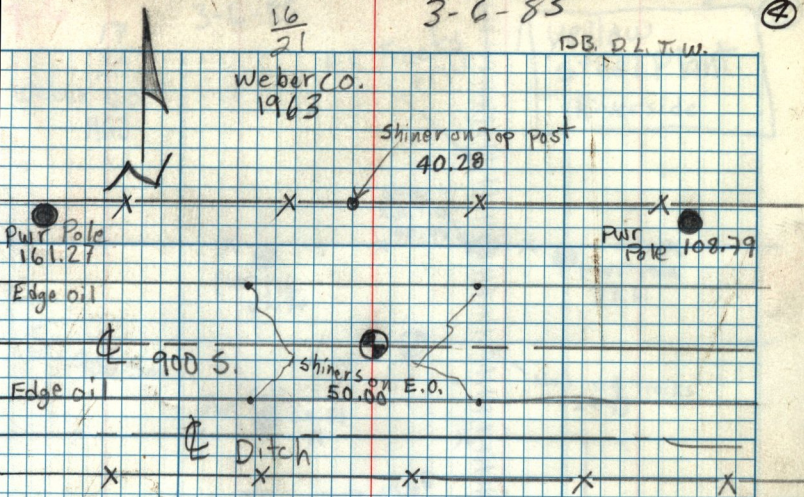 16
21
3-6-85
4
DB. D.L. T.W.
Weber Co.
1963
Shiner on Top post
40.28
Pwr Pole
161.27
Pwr
Pole 108.79
Edge oil
℄ 900 S.
Shiners on E.O.
50.00
Edge oil
℄ Ditch